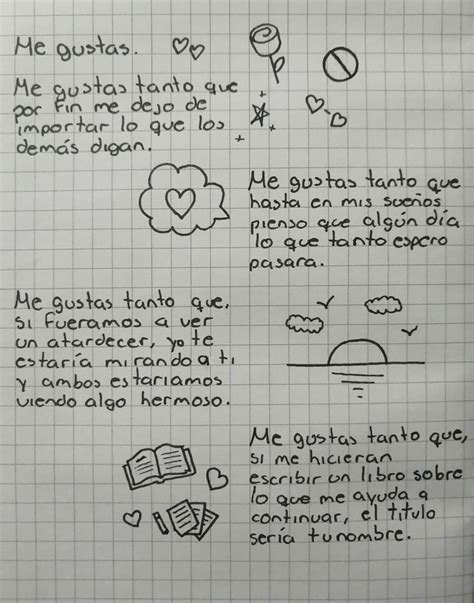 Me gustas.
Me gustas tanto que
por fin me dejo de
importar lo que los
demás digan.
Me gustas tanto que
hasta en mis sueños
pienso que algún día
lo que tanto espero
pasara.
Me gustas tanto que,
si fueramos a ver
un atardecer, yo te
estaría mirando a ti
y ambos estariamos
viendo algo hermoso.
Me gustas tanto que,
si me hicieran
escribir un libro sobre
lo que me ayuda a
continuar, el titulo
sería tu nombre.